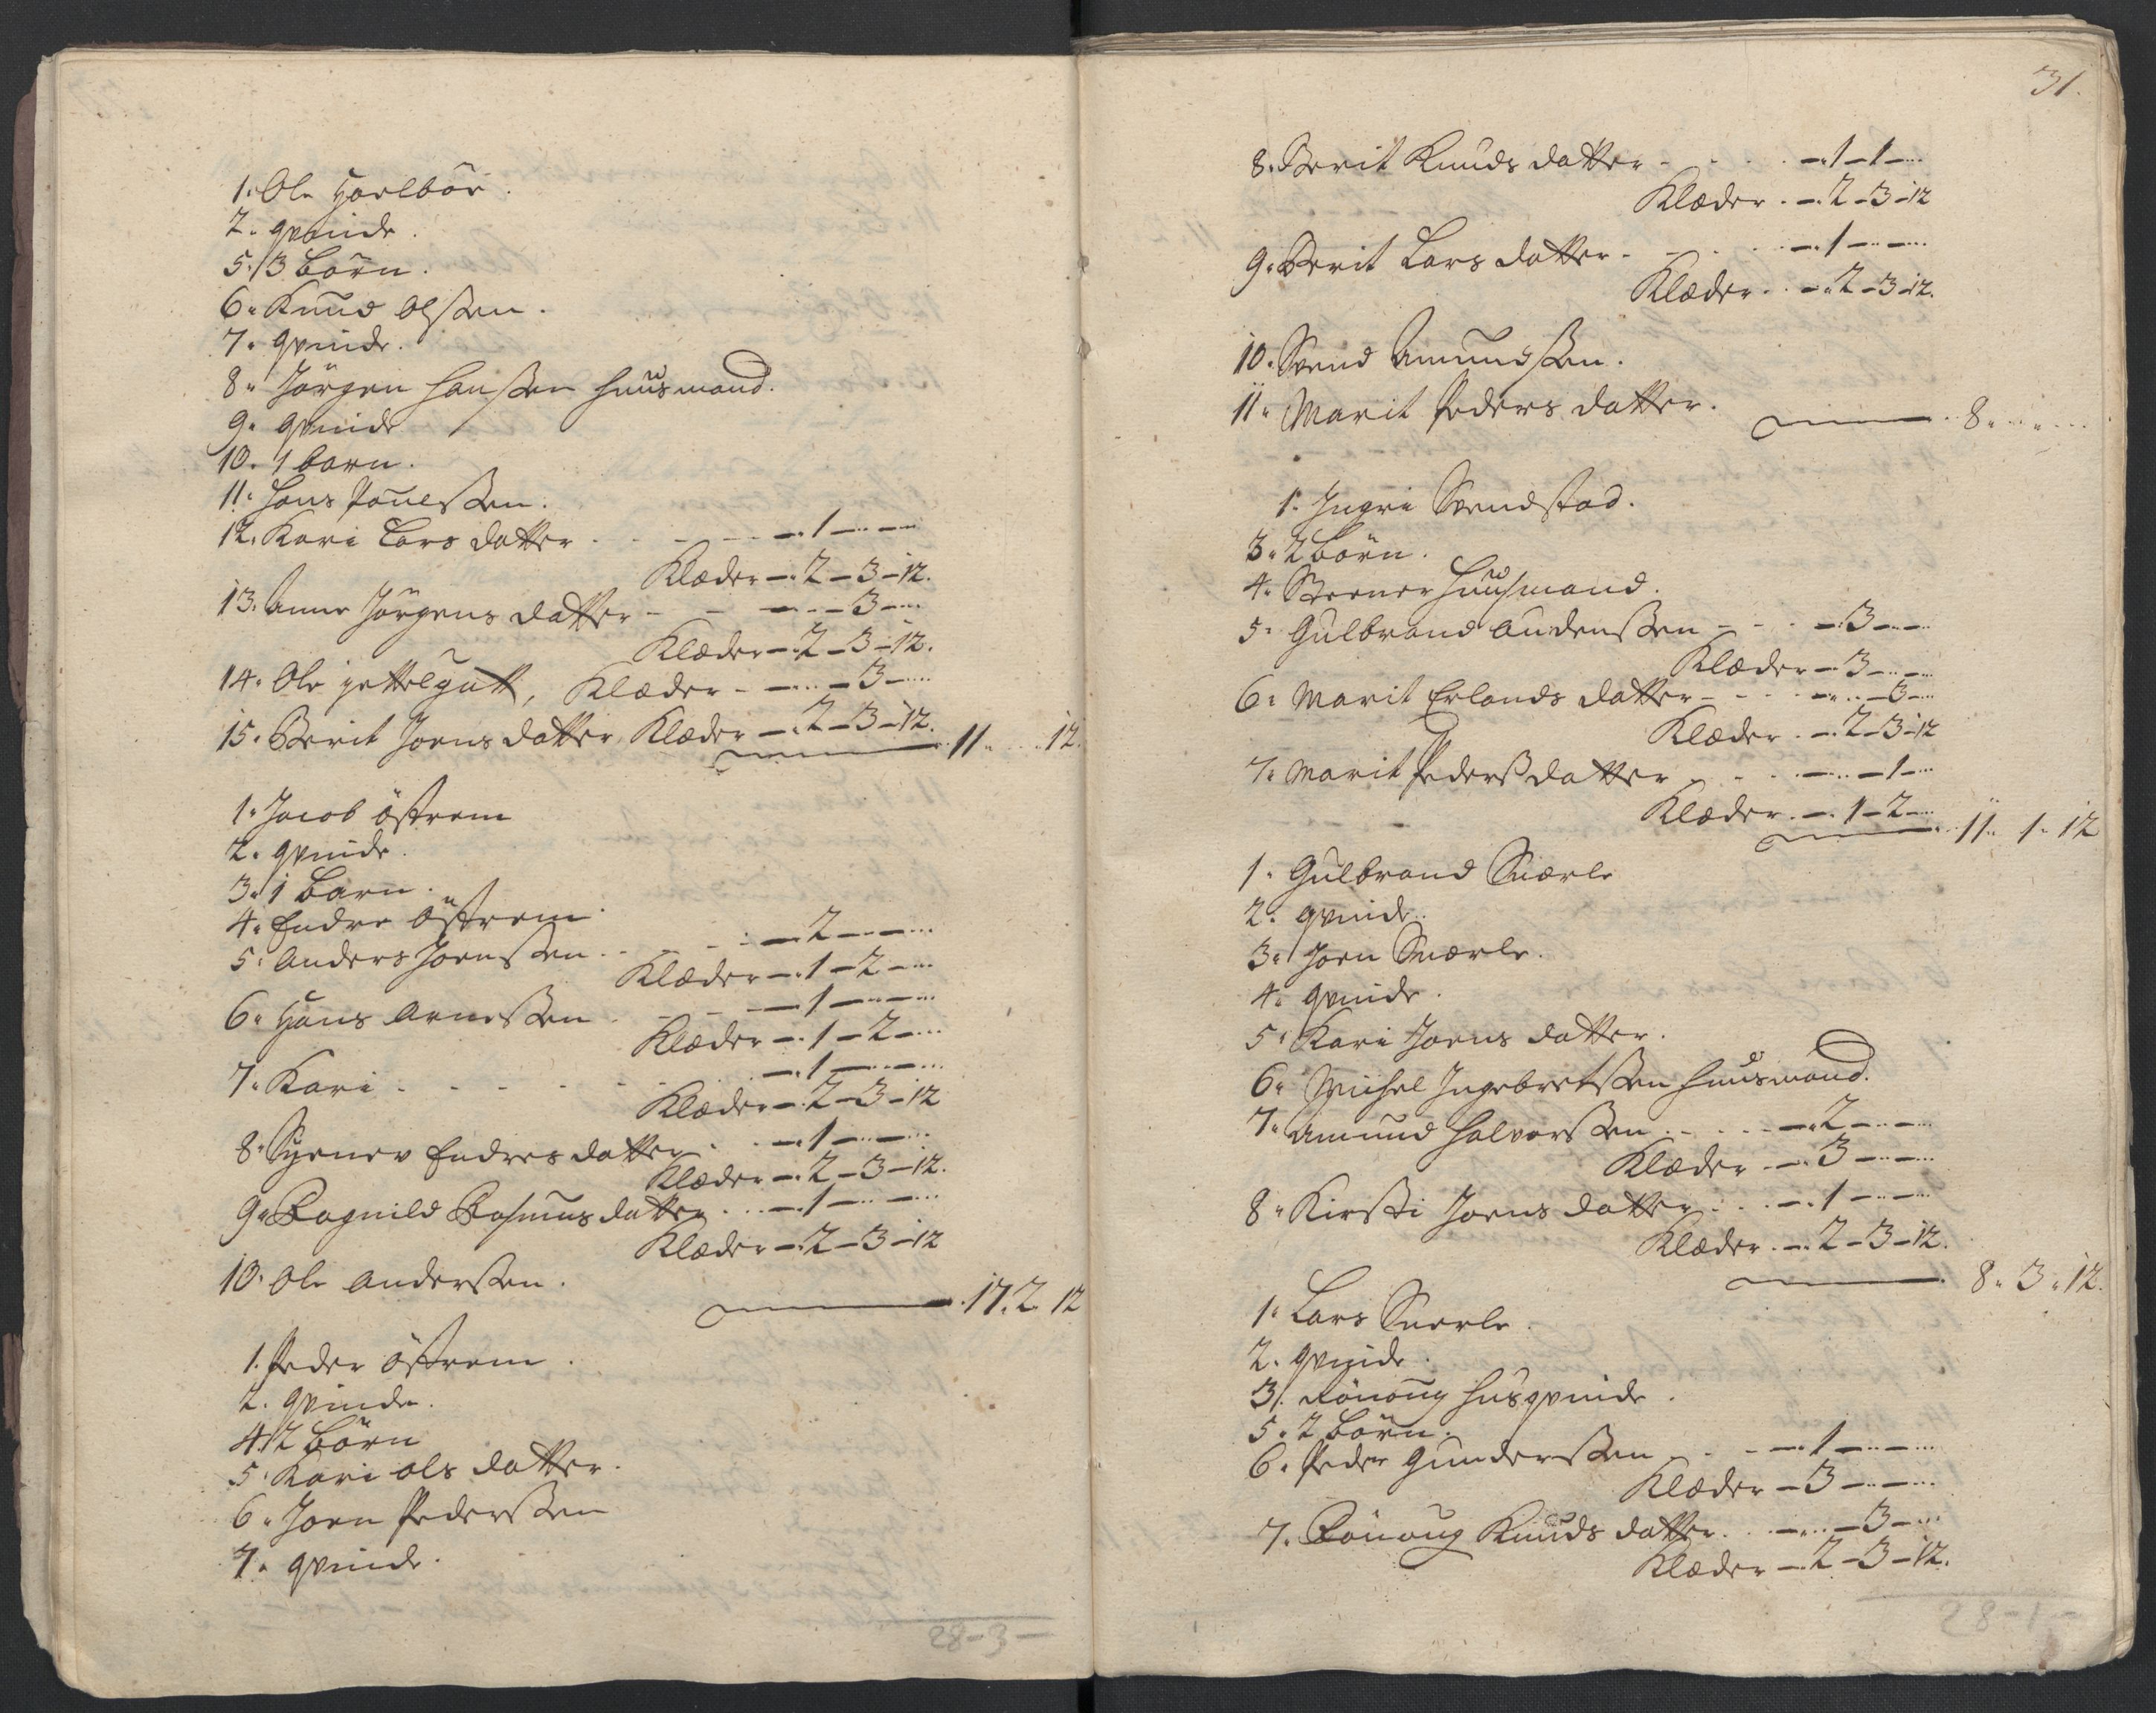 1. Ole Hoelbör.
2. qvinde.
5. / 3 börn.
6. Knud Olssen.
7. qvinde.
8. Jörgen Hanssen huusmand.
9. qvinde
10. 1 barn.
11. Hans Povelssen.
12. Kari Lars datter - - - 1 - -
Klæder - 2 - 3 - 12.
13. Anne Jörgens datter - - - 3 -
Klæder - 2 - 3 - 12.
14. Ole gutt, Klæder - - - 3 -
15. Berit Joens datter Klæder - 2 - 3 - 12.
11. .. 12.
1. Jacob Östrem
2. qvinde.
3. 1 barn.
4. Endre Östrem.
5. Anders Joenssen. - - 2 - -
Klæder - 1 - 2 -
6. Hans Arnessen - - 1 - -
Klæder - 1 - 2 -
7. Kari - - - - 1 - -
Klæder - 2 - 3 - 12
8. Synnev Endres datter - - 1 - -
Klæder - 2 - 3 - 12.
9. Ragnild Rasmus datter - - 1 - -
Klæder - 2 - 3 - 12
10. Ole Anderssen.
17. 2. 12
1. Peder Östrem.
2. qvinde.
4. / 2 börn
5. Kari Ols datter.
6. Joen Pederssen
7. qvinde.
28 - 3 -
31.
8. Berit Knuds datter - - - 1 - 1 -
Klæder - 2 - 3 - 12
9. Berit Lars datter - - 1 - -
Klæder - 2 - 3 - 12.
10. Svend Amundssen.
11. Marit Peders datter.
8. - -
1. Ingri Svendstad.
3. 2 börn.
4. Steener huusmand.
5. Gulbrand Audenssen - - 3 - -
Klæder - 3 - -
6. Marit Erlands datter - - - 3 -
Klæder - 2 - 3 - 12
7. Marit Pederss datter - - - 1 -
Klæder - 1 - 2 -
11. 1. 12
1. Gulbrand Snærle
2. qvinde.
3. Joen Snærle.
4. qvinde.
5. Kari Joens datter.
6. Michel Ingebretssen huusmand.
7. Amund Halvorssen - - 2 - -
Klæder - 3 - -
8. Kirsti Joens datter - - 1 - -
Klæder - 2 - 3 - 12.
8. 3. 12.
1. Lars Snerle.
2. qvinde.
3. Rönoug husqvinde.
5. 2 börn.
6. Peder Gunderssen - - 1 - -
Klæder - 3 - -
7. Rönoug Knuds datter - - - 3 -
Klæder - 2 - 3 - 12.
28 - 1 -